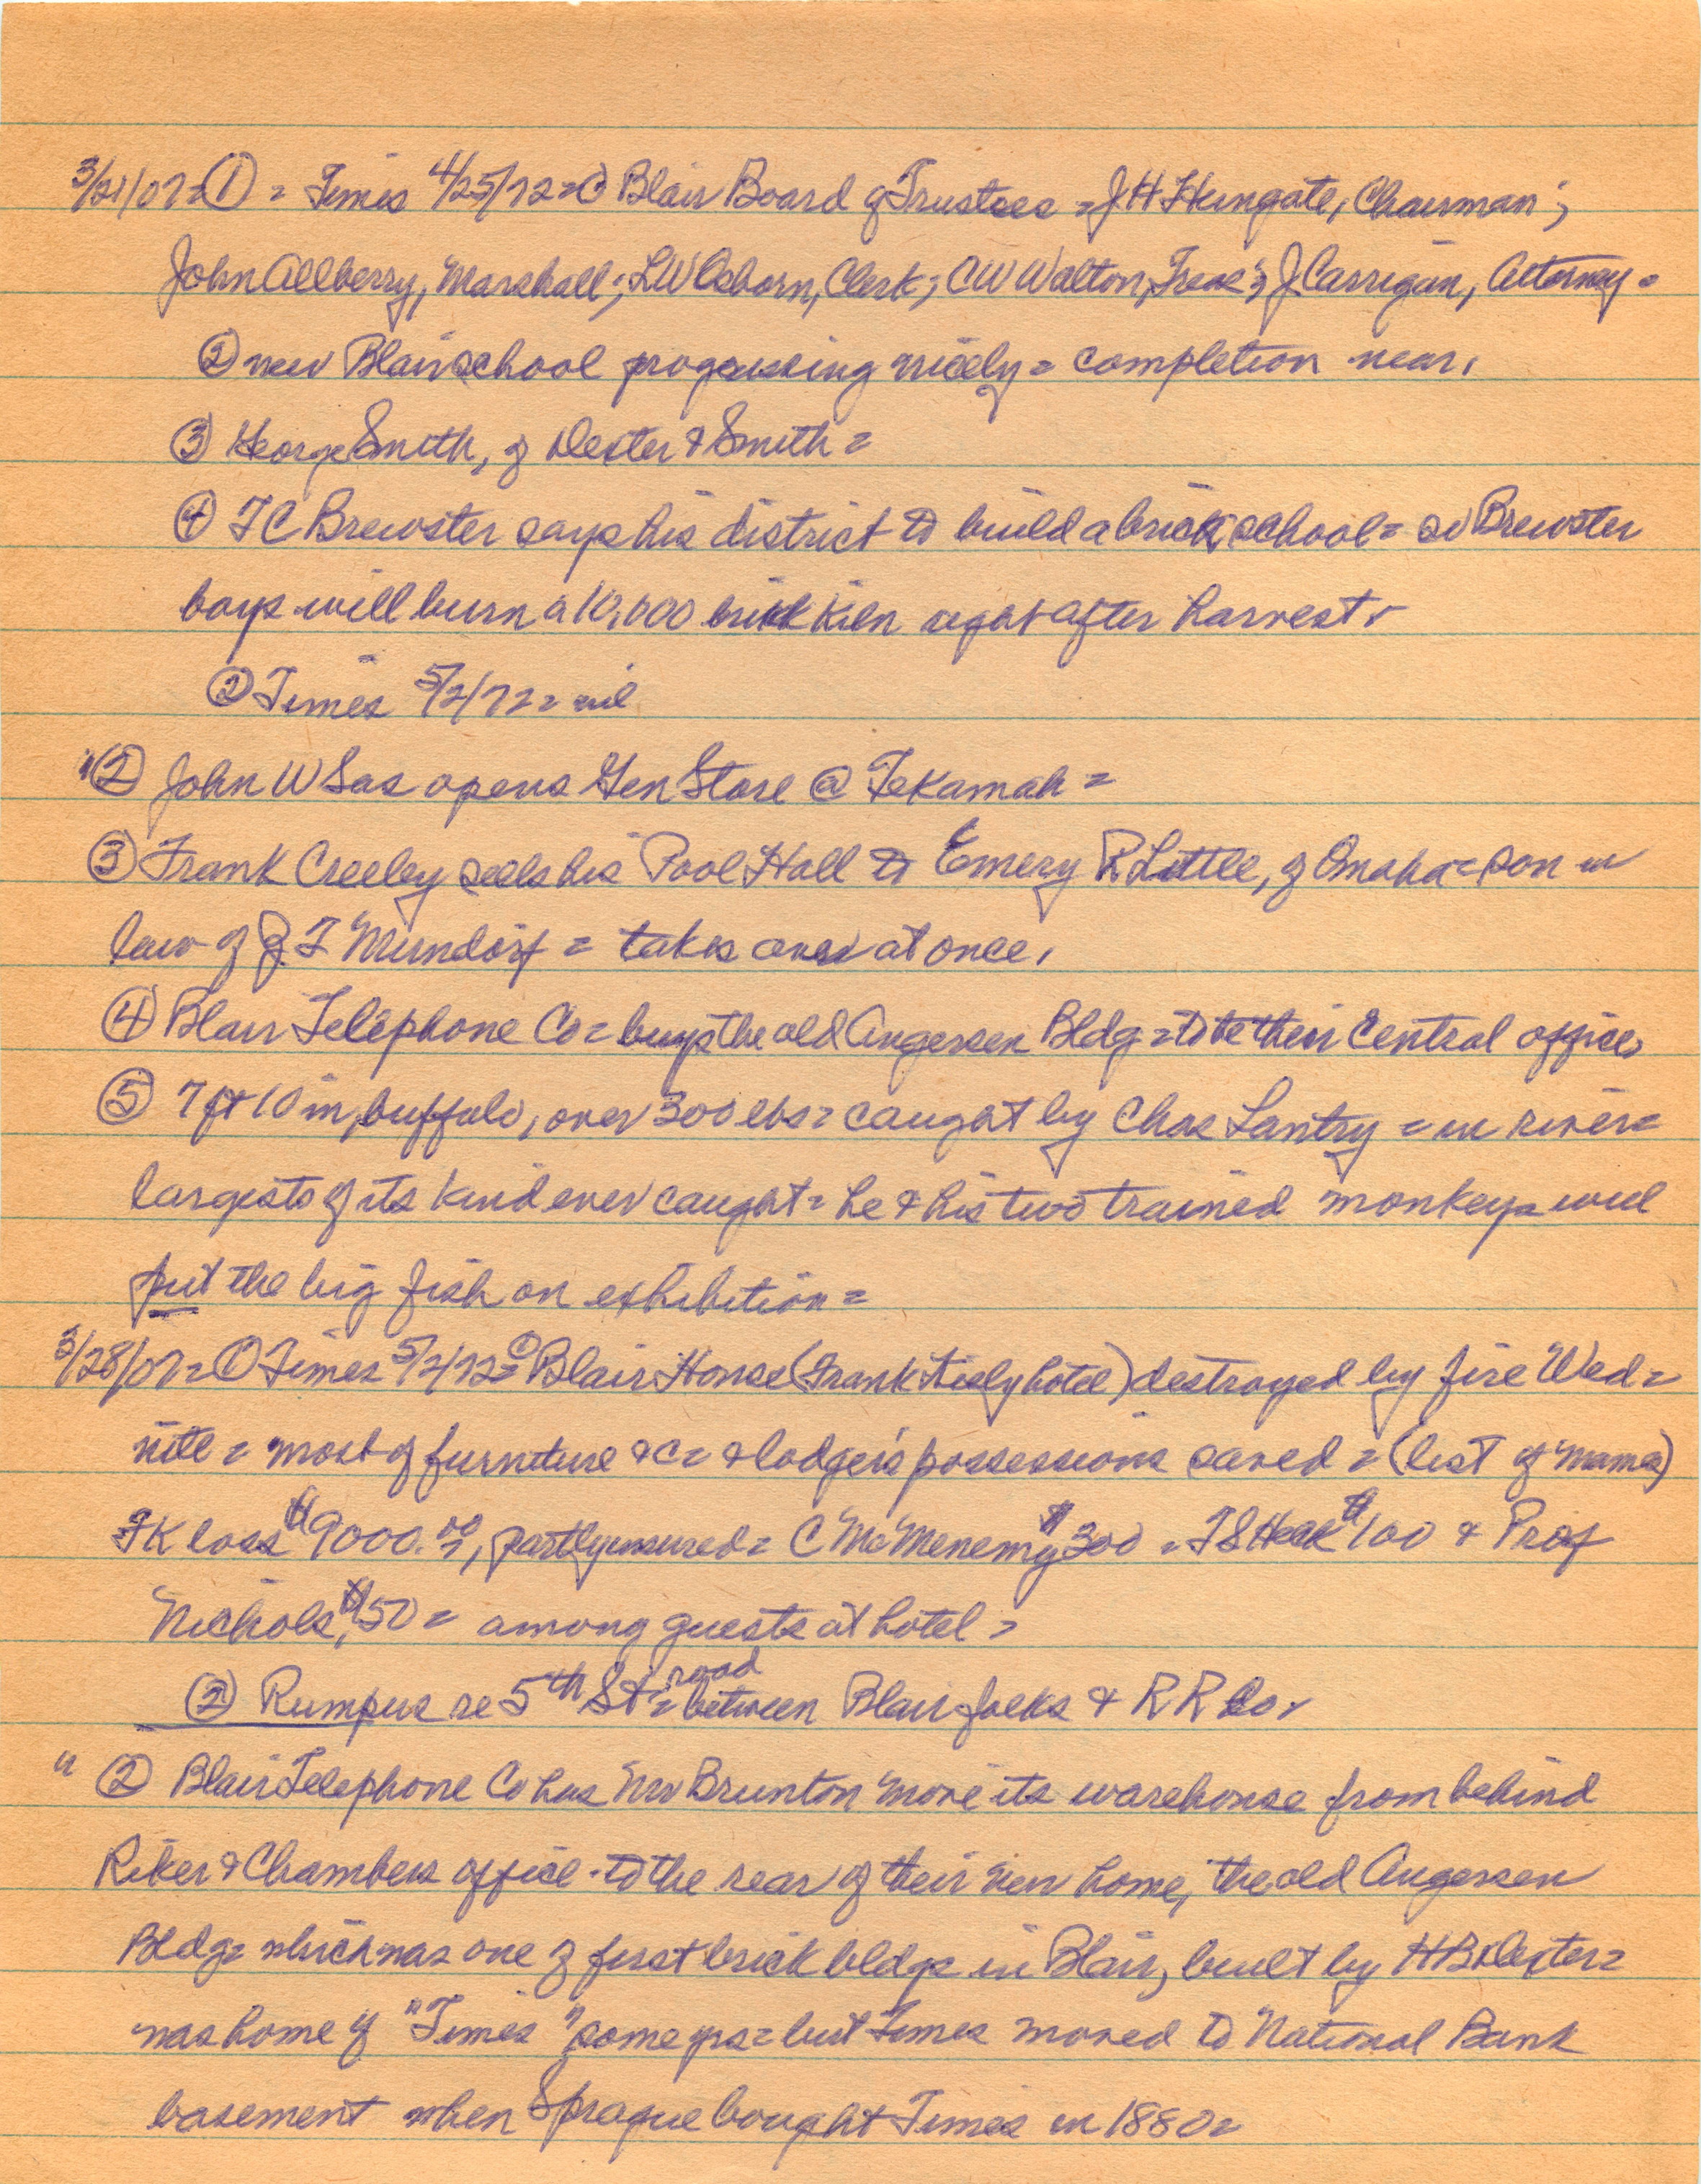 3/21/07=① = Times 4/25/72=① Blair Board of Trustees = J H Hungate, Chairman;
John Allberry, Marshall; L W Osborn, Clerk; C W Walton, Treas; J. Carrigan, Attorney =
② new Blair school progressing nicely = completion near.
③ George Smith, of Dexter & Smith =
④ T C Brewster says his district to build a brick school = so Brewster
boys will burn a 10,000 brick kiln right after harvest.
② Times 5/2/72 = nil
" ② John W Sas opens Gen Store @ Tekamah =
③ Frank Creeley sells his Pool Hall to Emery R Little, of Omaha = son in
law of J. F Mundorf = takes over at once.
④ Blair Telephone Co = buys the old Angersen Bldg = to be their Central office
⑤ 7 ft 10 in, buffalo, over 300 lbs = caught by Chas Lantry = in river =
largest of its kind ever caught = he & his two trained monkeys will
put the big fish on exhibition =
3/28/07= ① Times 5/2/72=① Blair House (Frank Kiely hotel) destroyed by fire Wed =
nite = most of furniture &c = & lodgers possessions saved = (list of names)
F K loss $9000.00, partly insured = C McMenemy $300 = F S $100 & Prof
Nichols, $50 = among guests at hotel =
② Rumpus re 5th St = road between Blair folks & R R Co.
" ② Blair Telephone Co has Wm Brunton move its warehouse from behind
Riker & Chambers office - to the rear of their new home, the old Angersen
Bldg = which was one of first brick bldgs in Blair, built by H B Dexter =
was home of "Times" some yrs = but Times moved to National Bank
basement when Sprague bought Times in 1880 =